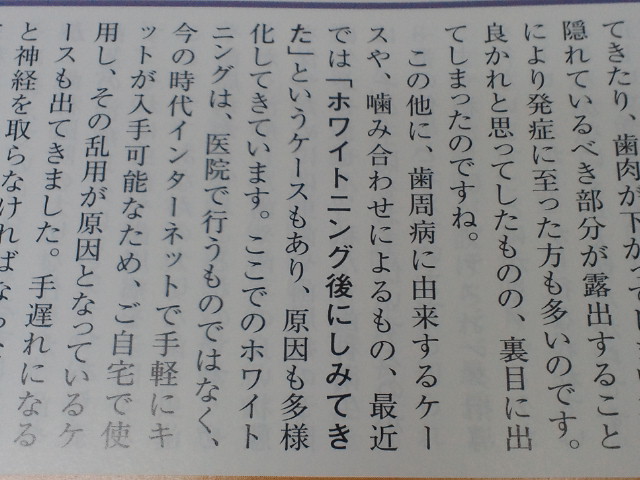 てきたり、歯肉が下がってしまい
隠れているべき部分が露出すること
により発症に至った方も多いのです。
良かれと思ってしたものの、裏目に出
てしまったのですね。
この他に、歯周病に由来するケー
スや、噛み合わせによるもの、最近
では「ホワイトニング後にしみてき
た」というケースもあり、原因も多様
化してきています。ここでのホワイト
ニングは、医院で行うものではなく、
今の時代インターネットで手軽にキ
ットが入手可能なため、ご自宅で使
用し、その乱用が原因となっているケ
ースも出てきました。手遅れになる
と神経を取らなければな